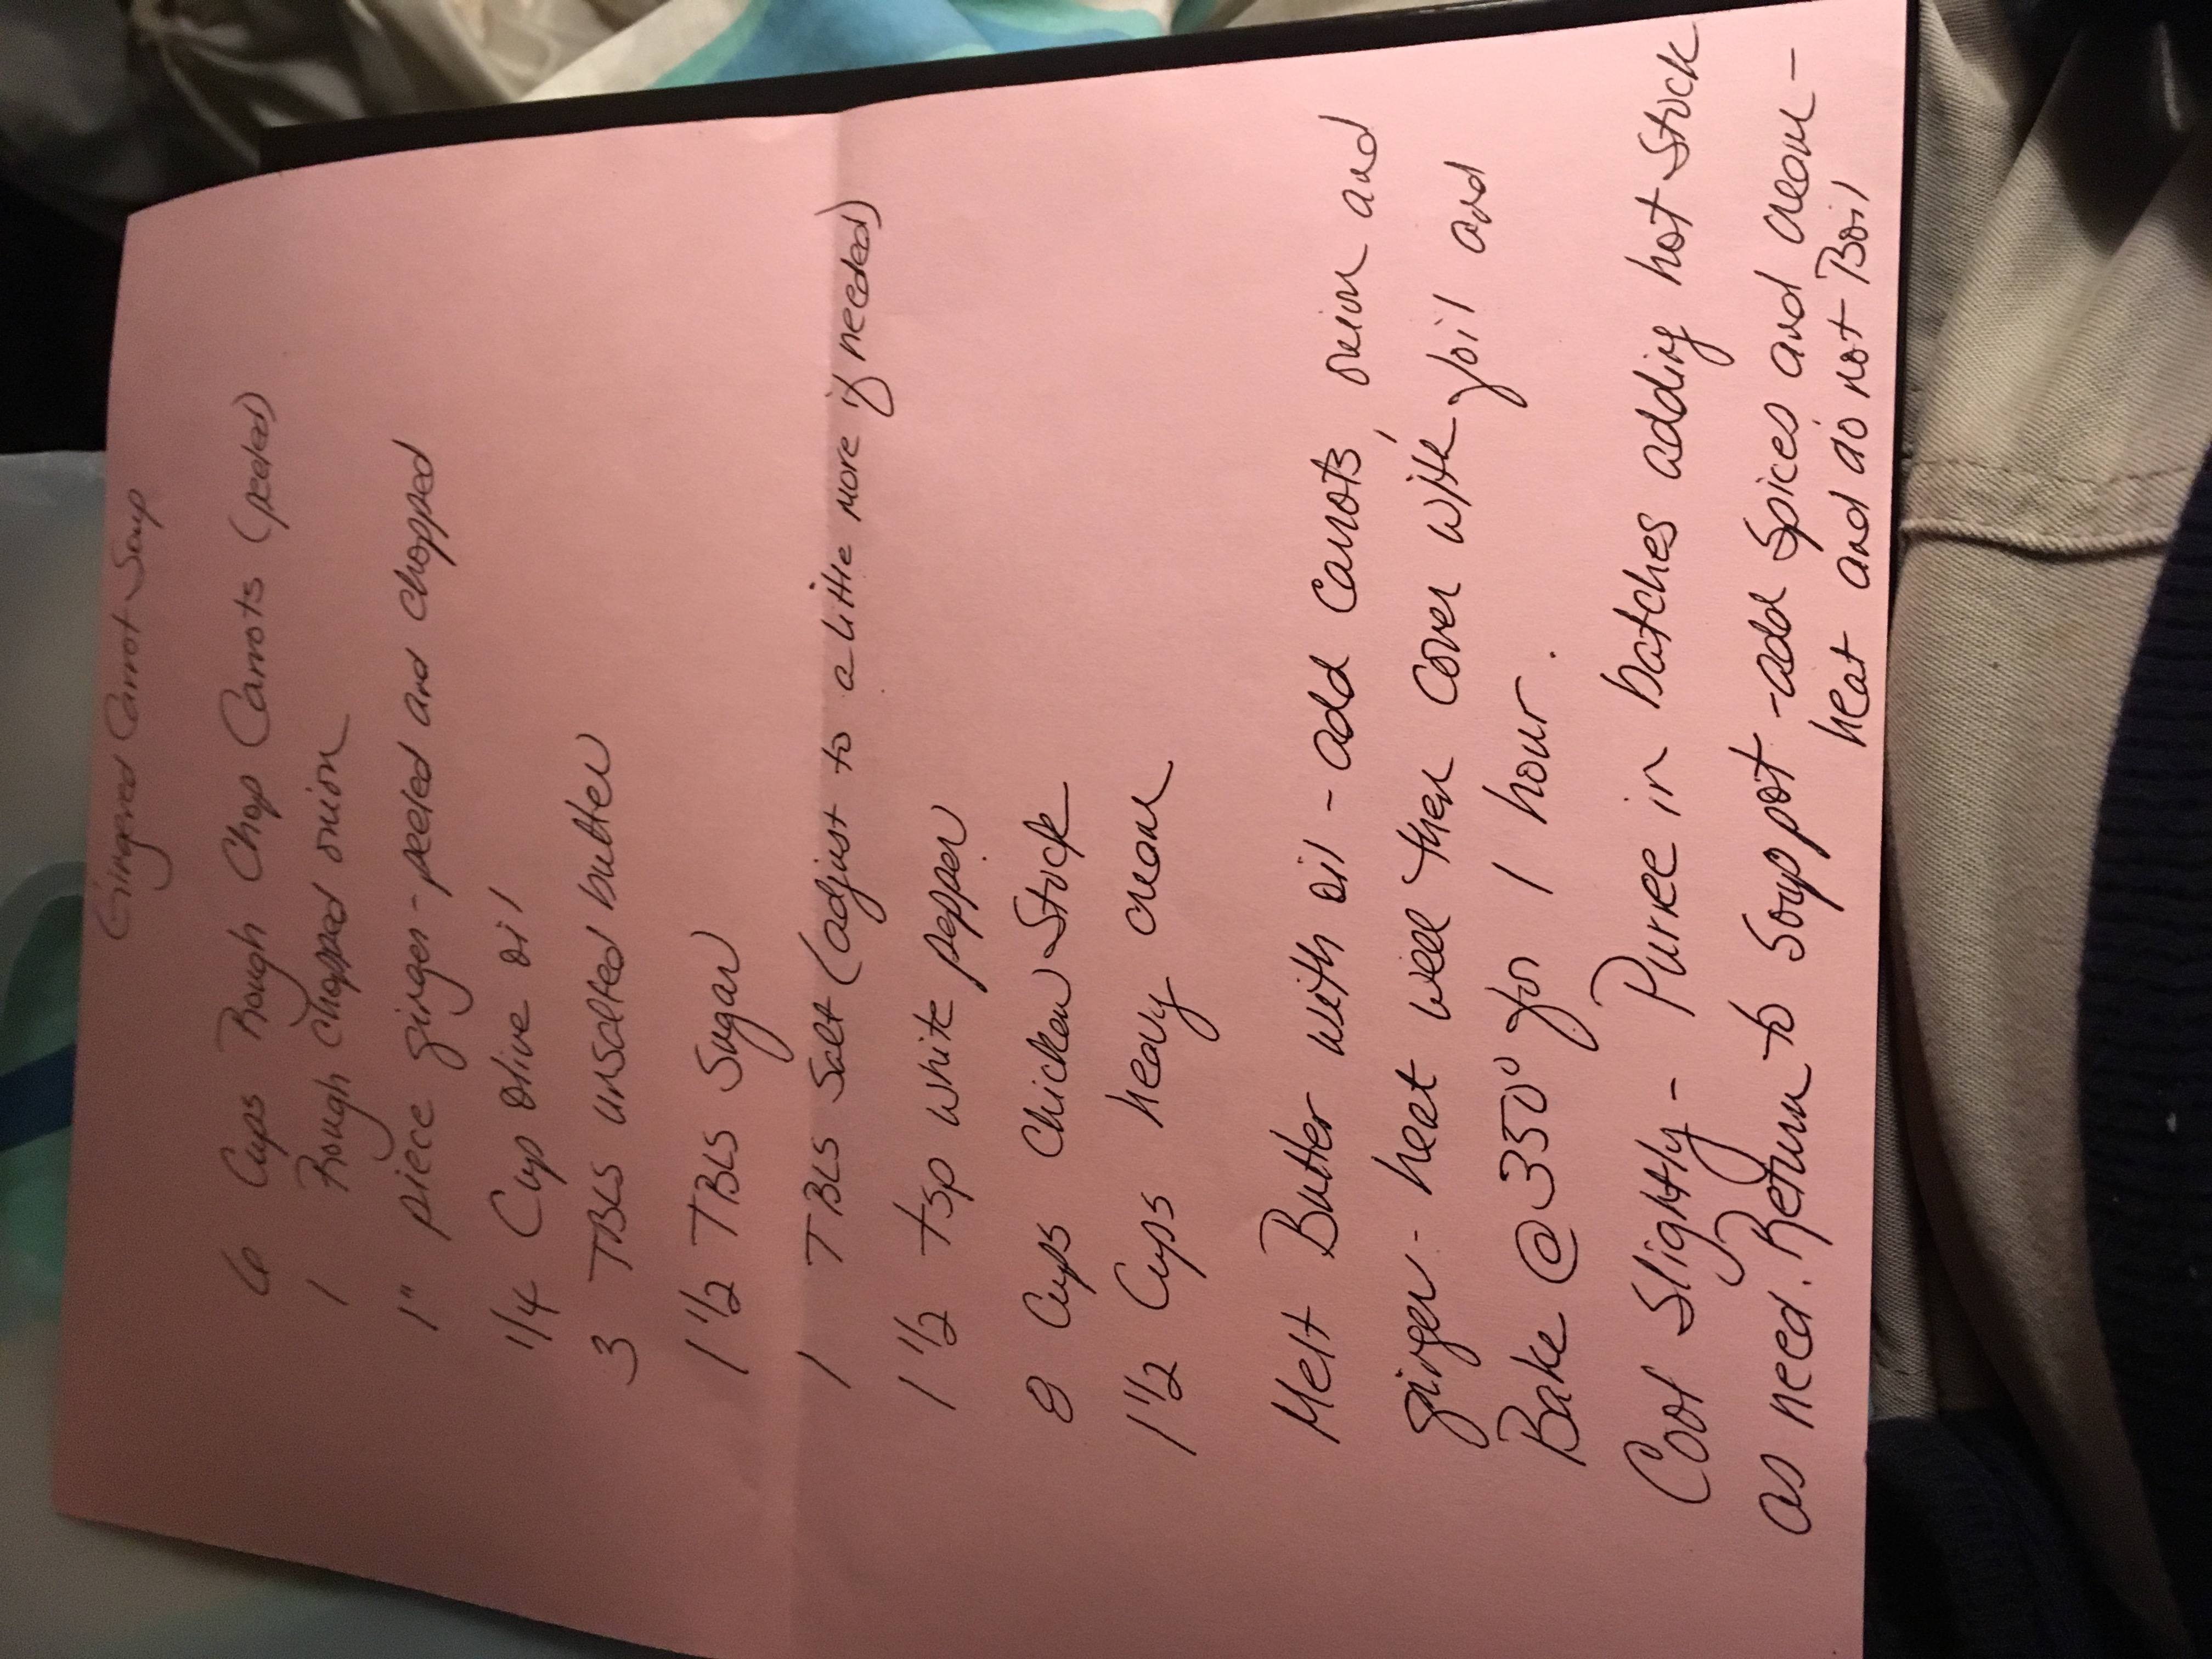 Gingered Carrot Soup
6 Cups Rough Chop Carrots (peeled)
1 Rough Chopped onion
1" piece ginger - peeled and chopped
1/4 Cup olive oil
3 TBLS unsalted butter
1 1/2 TBLS Sugar
1 TBLS Salt (adjust to a little more if needed)
1 1/2 tsp white pepper
8 Cups Chicken Stock
1 1/2 Cups heavy cream
Melt Butter with oil - add Carrots, onion and
ginger - heat well then cover with foil and
Bake @ 350° for 1 hour.
Cool Slightly - Puree in batches adding hot Stock
as need. Return to Soup pot - add Spices and cream -
heat and do not Boil